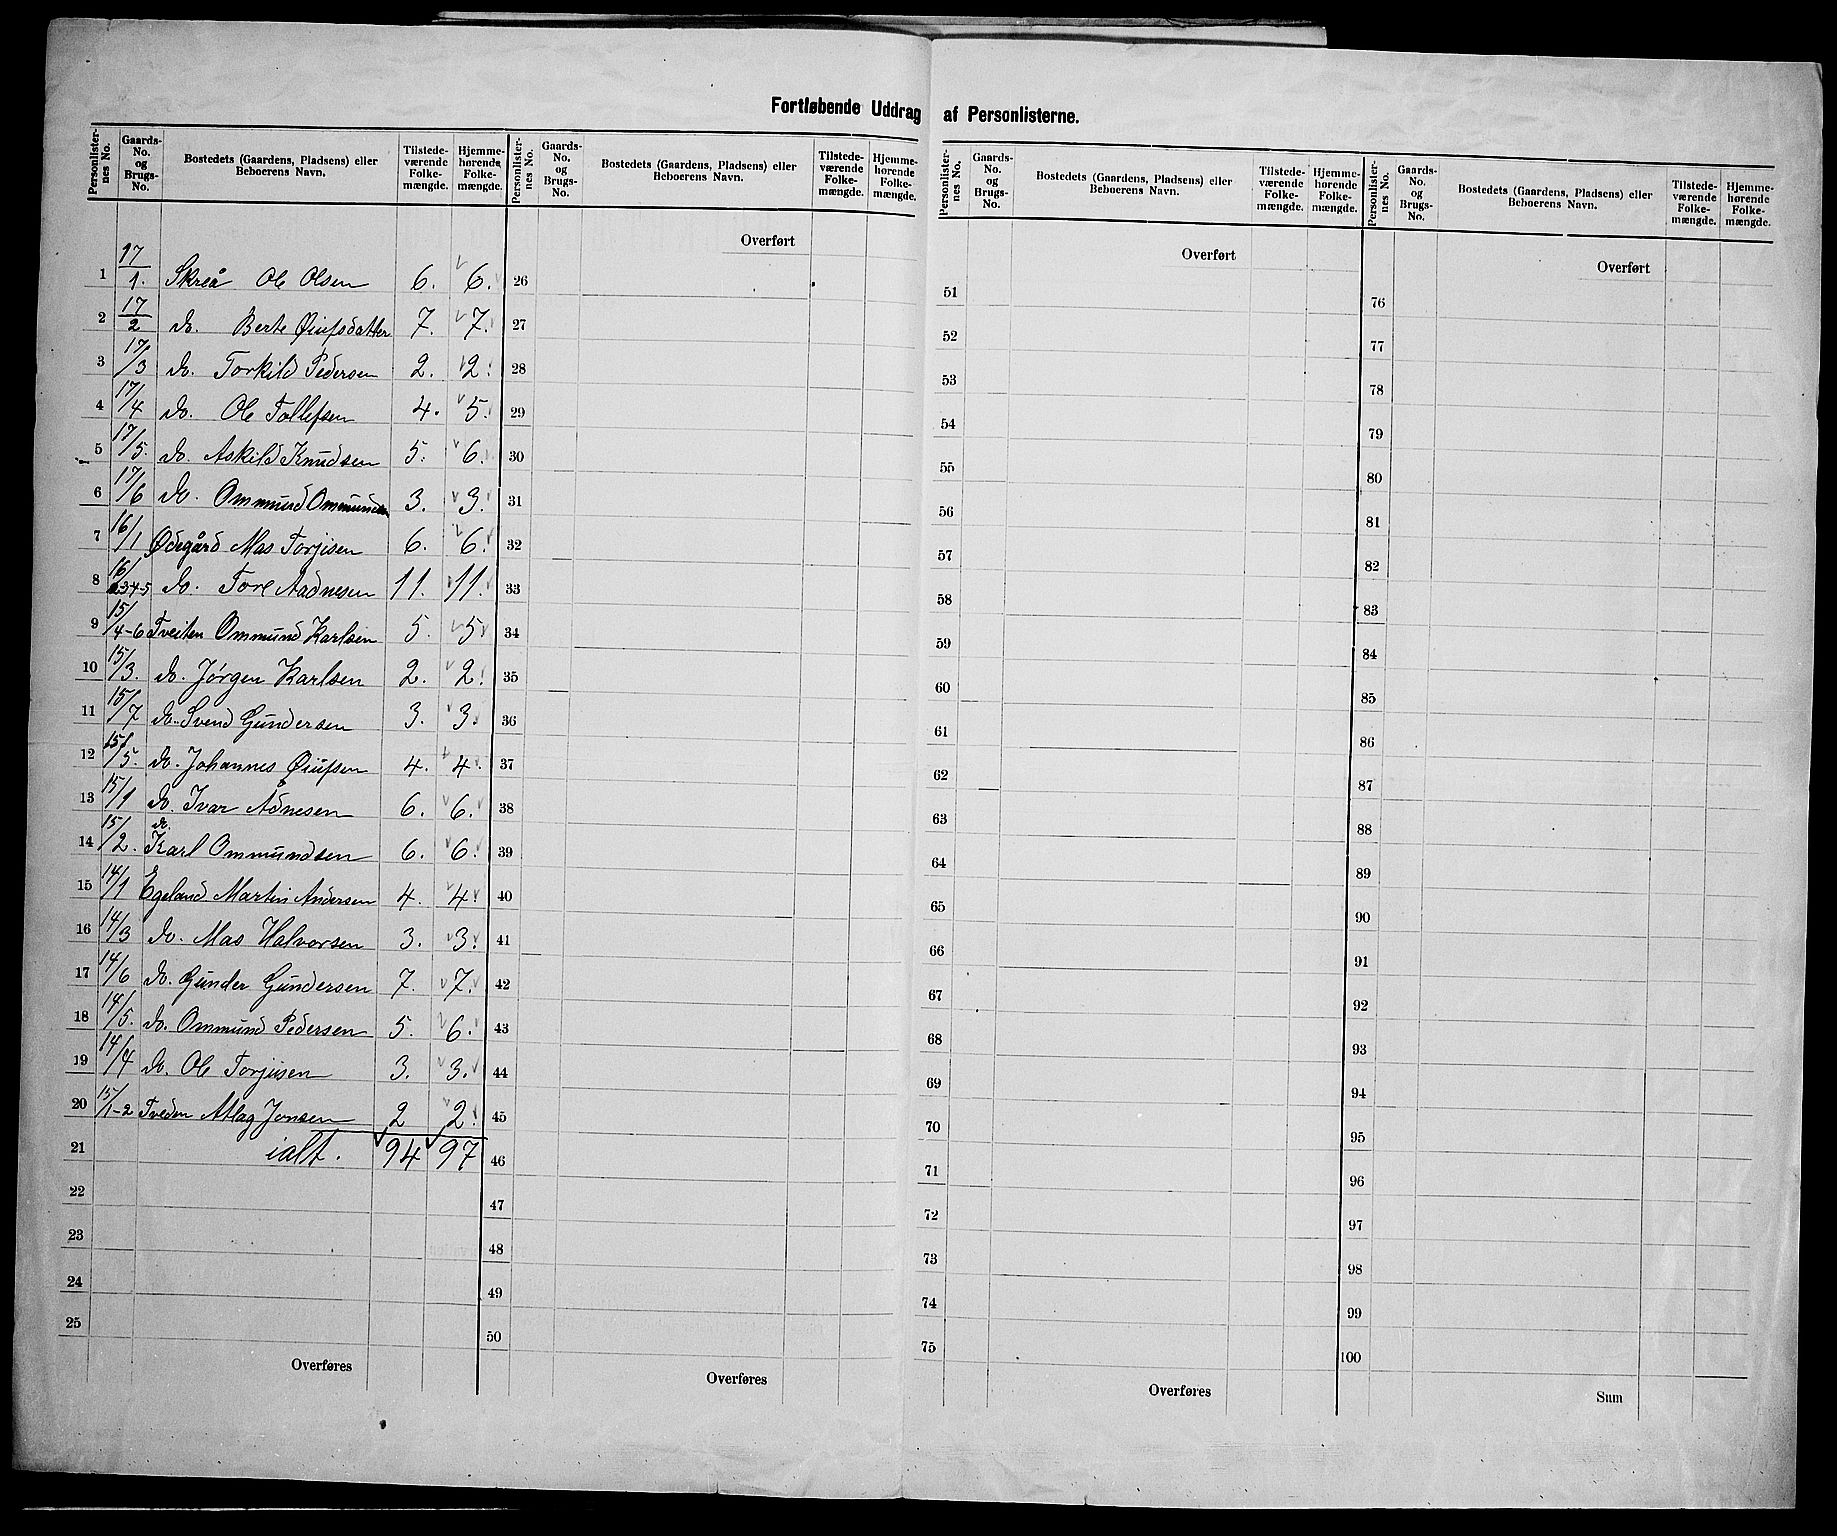 Fortløbende Uddrag af Personlisterne.
Personlister-nes No. Gaards-No. og Brugs-No. Bostedets (Gaardens, Pladsens) eller Beboerens Navn. Tilstede-værende Folke-mængde. Hjemme-hørende Folke-mængde.
1 17/1. Skreå Ole Olsen 6. 6.
2 17/2 do. Berte Øiufsdatter 7. 7.
3 17/3 do. Torkild Pedersen 2. 2.
4 17/4 do. Ole Tollefsen 4. 5.
5 17/5. do. Askild Knudsen 5. 6.
6 17/6 do. Ommund Ommundsen 3. 3.
7 16/1 Ødegård Mas Torjisen 6. 6.
8 16/2-3-4-5 do. Tore Aadnesen 11. 11.
9 15/4-6 Tveiten Ommund Karlsen 5. 5
10 15/3. do. Jørgen Karlsen 2. 2.
11 15/7 do. Svend Gundersen 3. 3.
12 15/5. do. Johannes Øiufsen 4. 4.
13 15/1 do. Ivar Ådnesen 6. 6.
14 15/2. do. Karl Ommundsen 6. 6.
15 14/1 Egeland Martin Andersen 4. 4.
16 14/3 do. Mas Halvorsen 3. 3.
17 14/6 do. Gunder Gundersen 7. 7.
18 14/5. do. Ommund Pedersen 5. 6.
19 14/4 do. Ole Torjisen 3. 3.
20 15/1-2 Tveden Atlag Jonsen 2 2.
21 ialt. 94 97
22
23
24
25
Overføres
Personlister-nes No. Gaards-No. og Brugs-No. Bostedets (Gaardens, Pladsens) eller Beboerens Navn. Tilstede-værende Folke-mængde. Hjemme-hørende Folke-mængde.
Overført
26
27
28
29
30
31
32
33
34
35
36
37
38
39
40
41
42
43
44
45
46
47
48
49
50
Overføres
Personlister-nes No. Gaards-No. og Brugs-No. Bostedets (Gaardens, Pladsens) eller Beboerens Navn. Tilstede-værende Folke-mængde. Hjemme-hørende Folke-mængde.
Overført
51
52
53
54
55
56
57
58
59
60
61
62
63
64
65
66
67
68
69
70
71
72
73
74
75
Overføres
Personlister-nes No. Gaards-No. og Brugs-No. Bostedets (Gaardens, Pladsens) eller Beboerens Navn. Tilstede-værende Folke-mængde. Hjemme-hørende Folke-mængde.
Overført
76
77
78
79
80
81
82
83
84
85
86
87
88
89
90
91
92
93
94
95
96
97
98
99
100
Sum